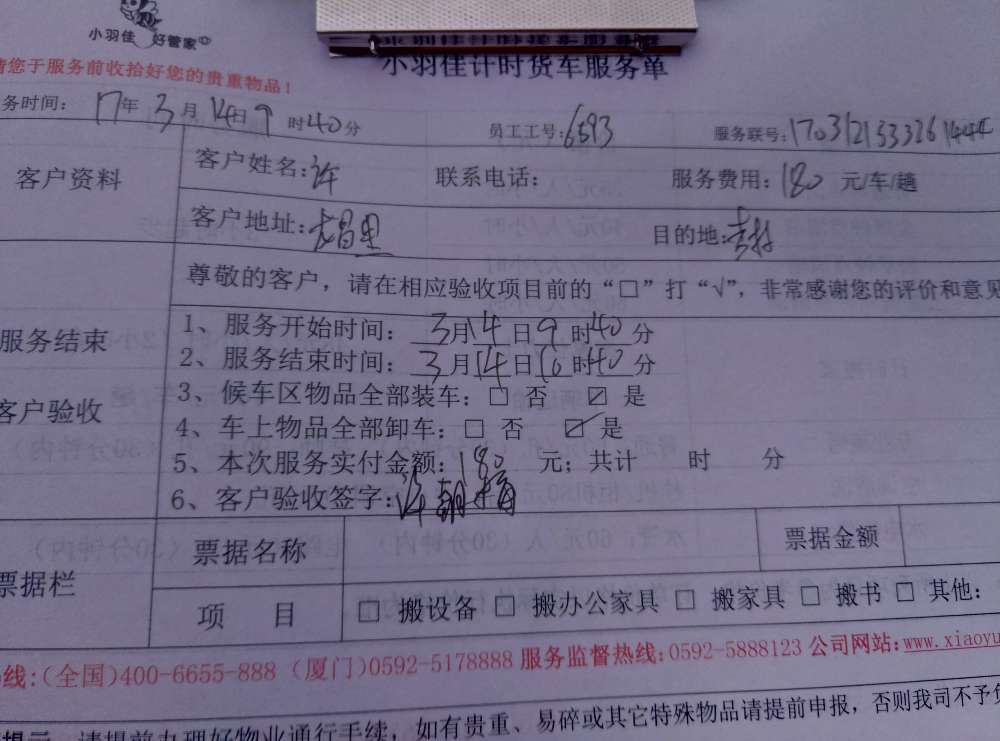 小羽佳 好管家
请您于服务前收拾好您的贵重物品！
小羽佳计时货车服务单
务时间： 17年 3月 14日 9时40分 员工工号：6593 服务联号：170312153326
客户资料 客户姓名：许 联系电话： 服务费用：180 元/车/趟
客户地址： 昌里 目的地：
尊敬的客户，请在相应验收项目前的“□”打“√”，非常感谢您的评价和意见
服务结束
客户验收
1、服务开始时间： 3月14日9时40分
2、服务结束时间： 3月14日10时40分
3、候车区物品全部装车：□ 否 ☑ 是
4、车上物品全部卸车：□ 否 ☑ 是
5、本次服务实付金额：180 元；共计 时 分
6、客户验收签字：许
票据栏 票据名称 票据金额
项 目 □ 搬设备 □ 搬办公家具 □ 搬家具 □ 搬书 □ 其他：
线：(全国)400-6655-888 (厦门)0592-5178888 服务监督热线：0592-5888123 公司网站：www.xiaoyu
提示 请提前办理好物业通行手续，如有贵重、易碎或其它特殊物品请提前申报，否则我司不予负